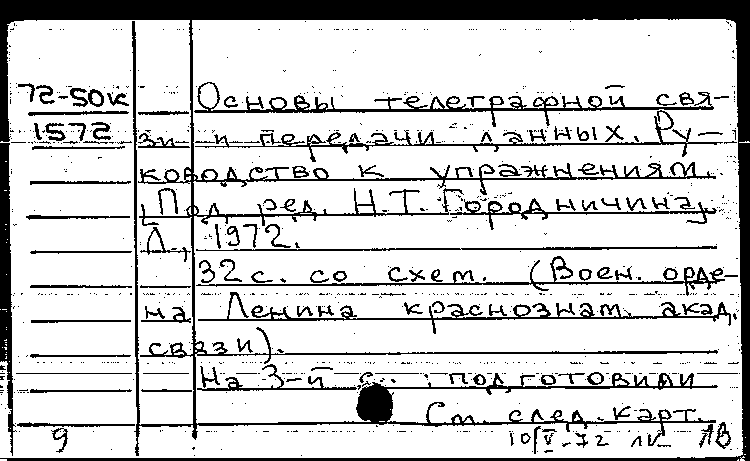 72-50к
1572
Основы телеграфной свя-
зи и передачи данных. Ру-
ководство к упражнениям.
[Под ред. Н.Т. Городничина]
Л., 1972.
32 с. со схем. (Воен. орде-
на Ленина краснознам. акад.
связи).
На 3-й с.: подготовили
См. след. карт.
9
10/V-72
ЛВ